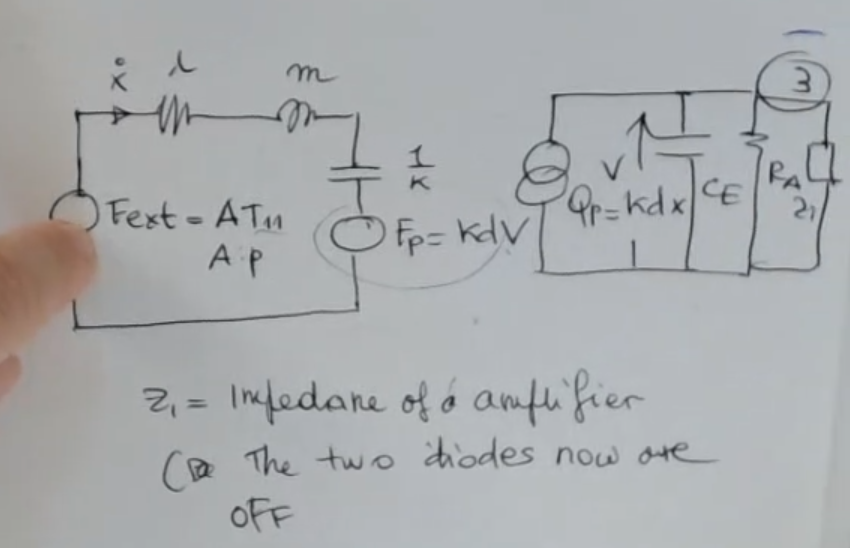 ẋ λ m
1/K
Fext = AT11
A·p
Fp = KdV
3
V
Qp = kdx
CE
RA
Z1
Z1 = Impedane of a amplifier
(The two diodes now are
OFF